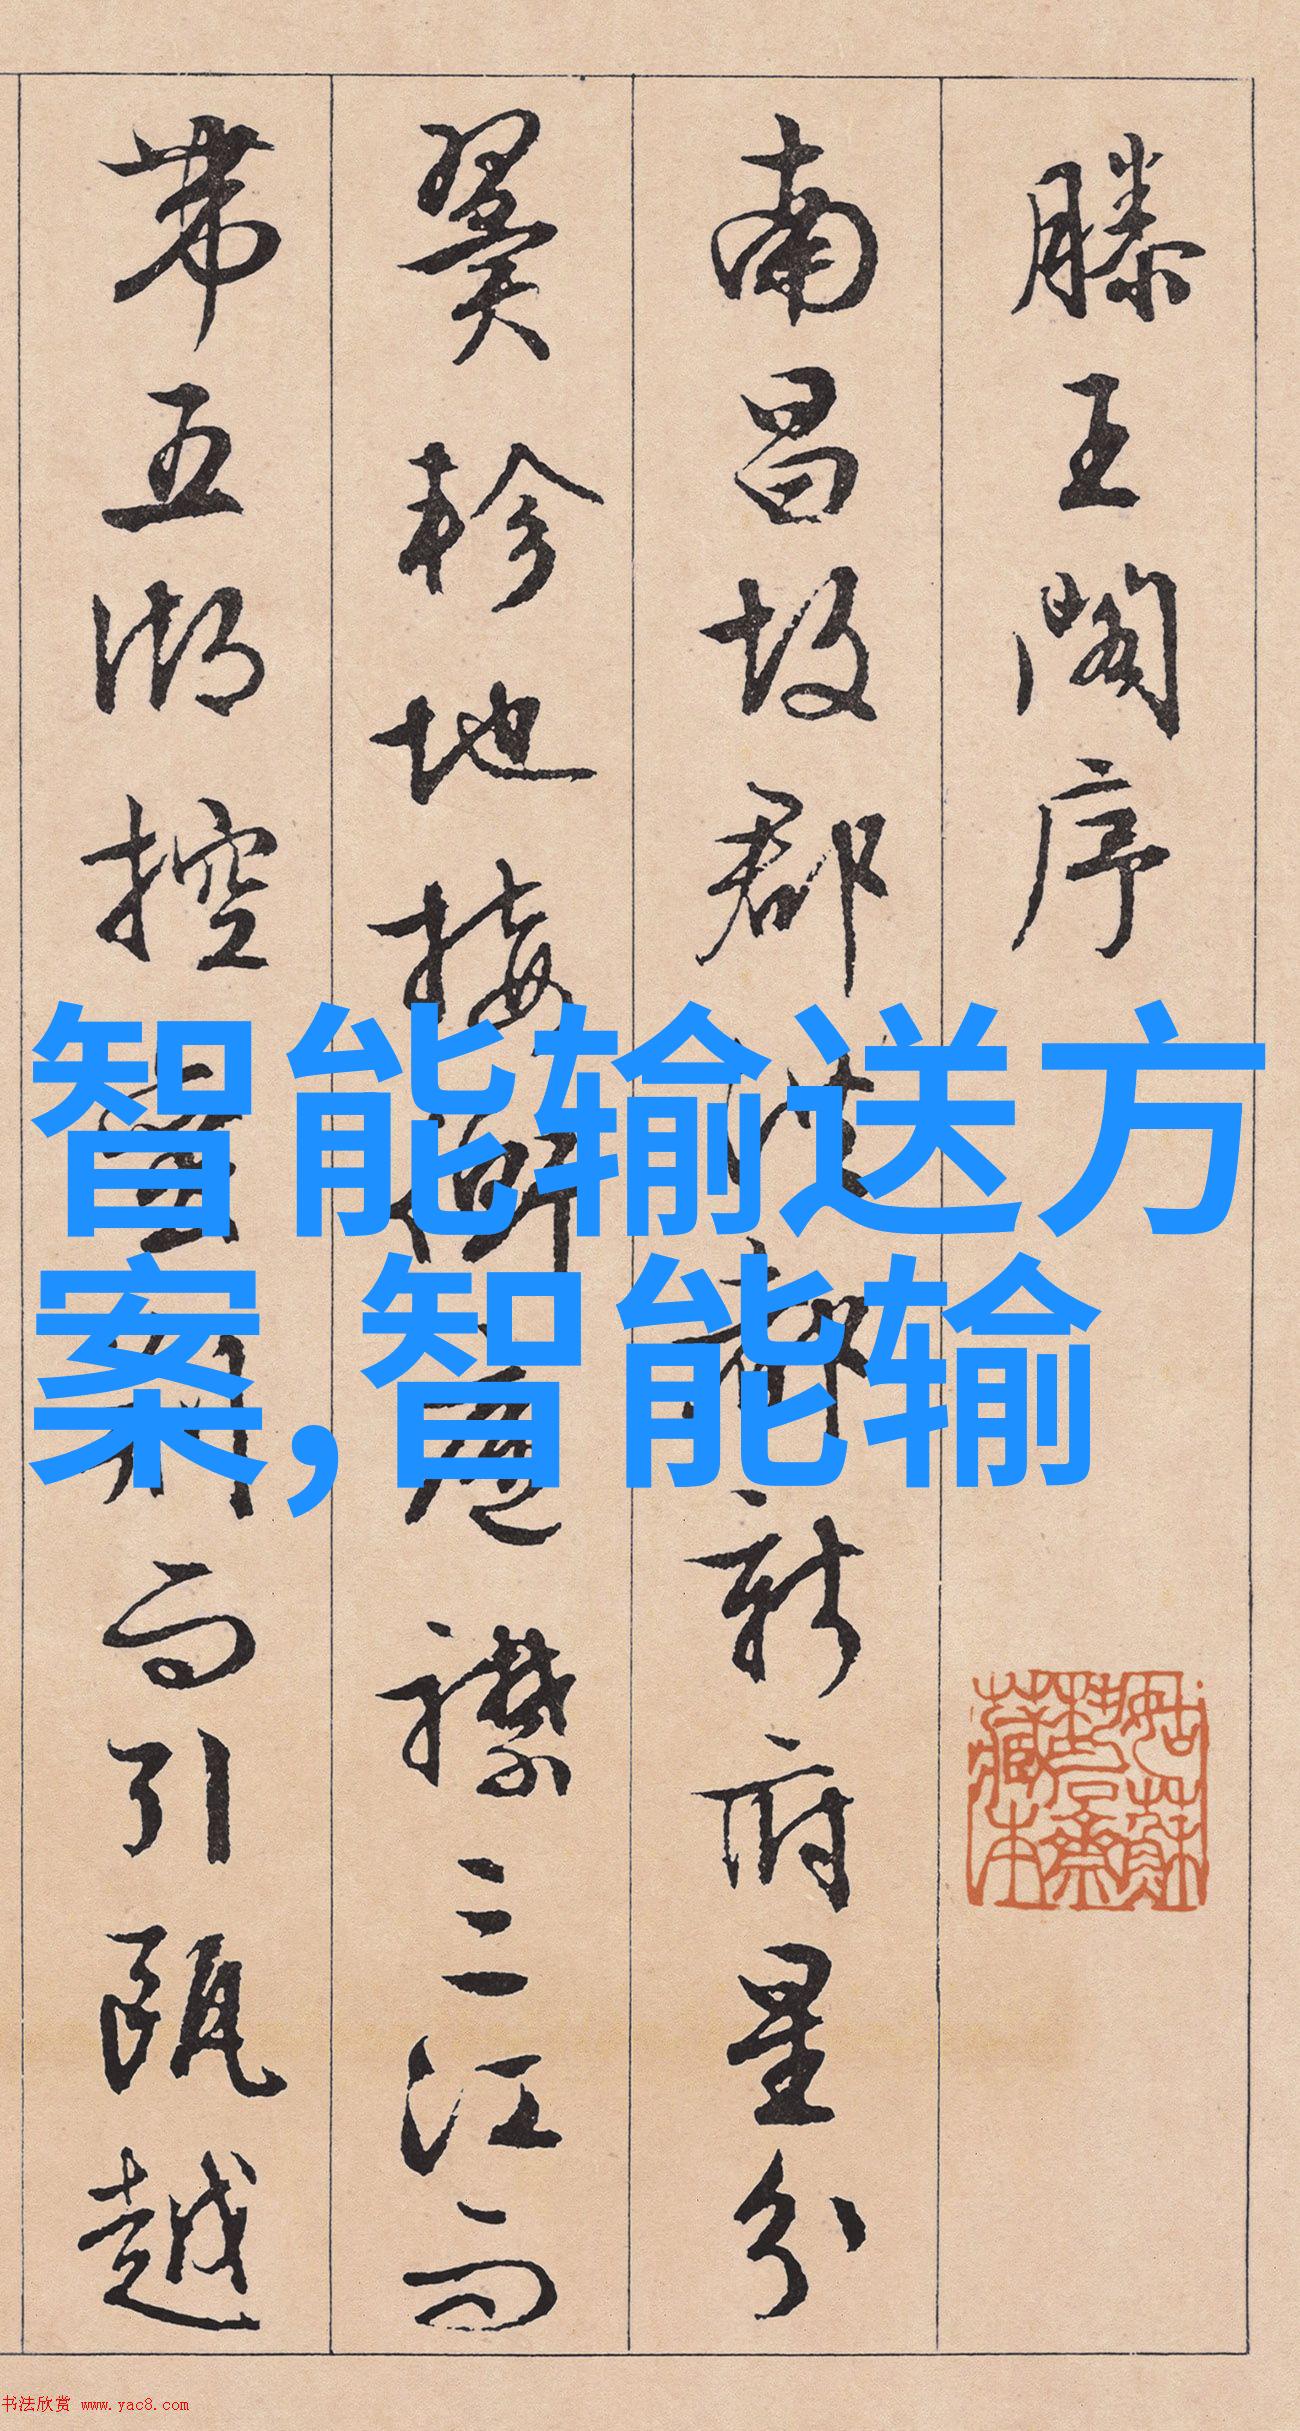 滕王阁序
南昌故郡洪都新府星分
翼轸地接衡庐襟三江而
带五湖控蛮荆而引瓯越
智能输送方
案,智能输
姑苏
藏本
书法欣赏 www.yac8.com